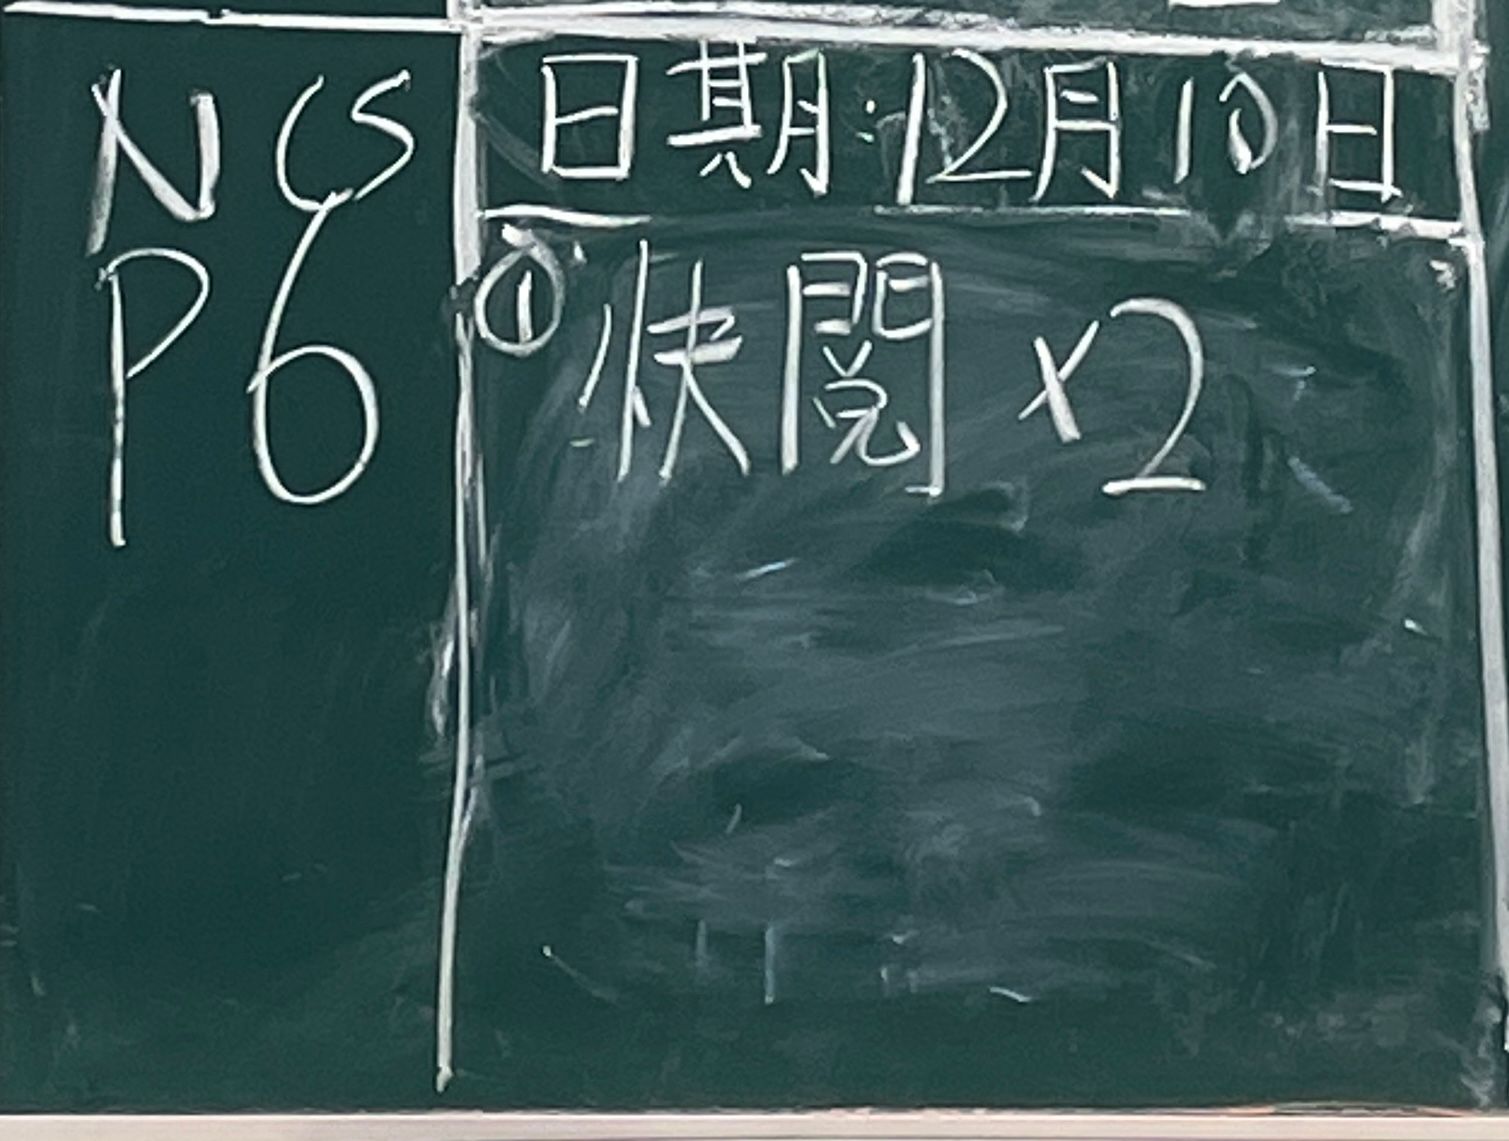 NCS
P6
日期:12月10日
① 快閱 x2